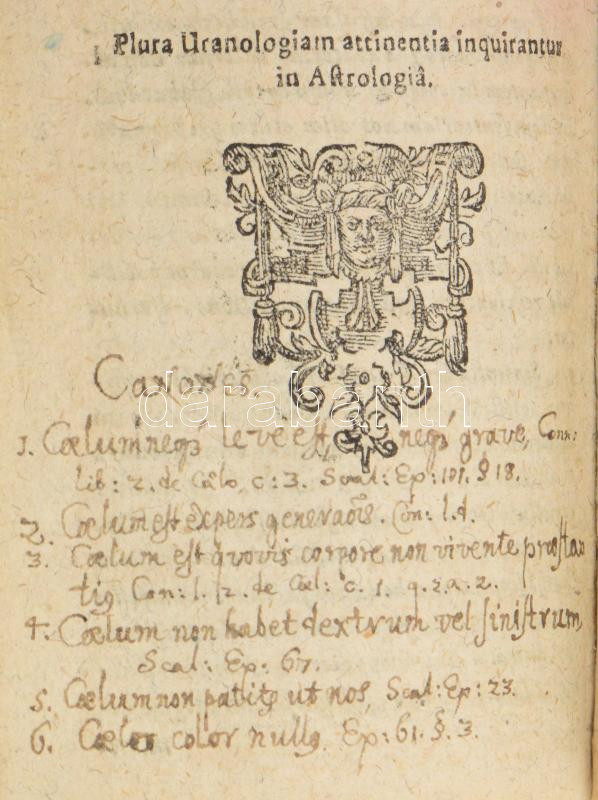 Plura Uranologiam attinentia inquirantur
in Aſtrologiâ.
Canones.
1. Cœlum neqꝫ leve eſt, neqꝫ grave, Con:
lib: 2. de Cœlo, c: 3. Scal: Ep: 101. § 18.
2. Cœlum eſt expers generaōis. Con: l. d.
3. Cœlum eſt quovis corpore non vivente præſtan
tiꝰ Con: l. 2. de Cœl: c. 1. q. 2. a. 2.
4. Cœlum non habet dextrum vel ſiniſtrum,
Scal: Ep: 67.
5. Cœlum non patitꝰ ut nos, Scal: Ep: 23.
6. Cœlo color nullꝰ. Ep: 61. §. 3.
darabanth